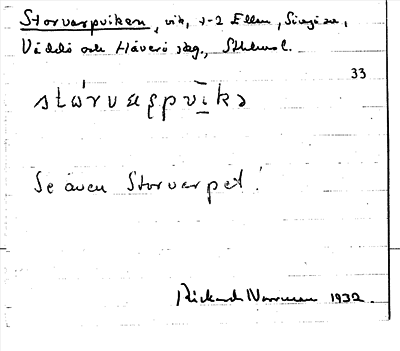 Storvarpviken, vik, 1-2 Ellan, Singö sn,
Väddö och Häverö skg., Sthlms l.
33
stårvarpvika
Se även Storvarpet!
Rickard Norrman 1932.